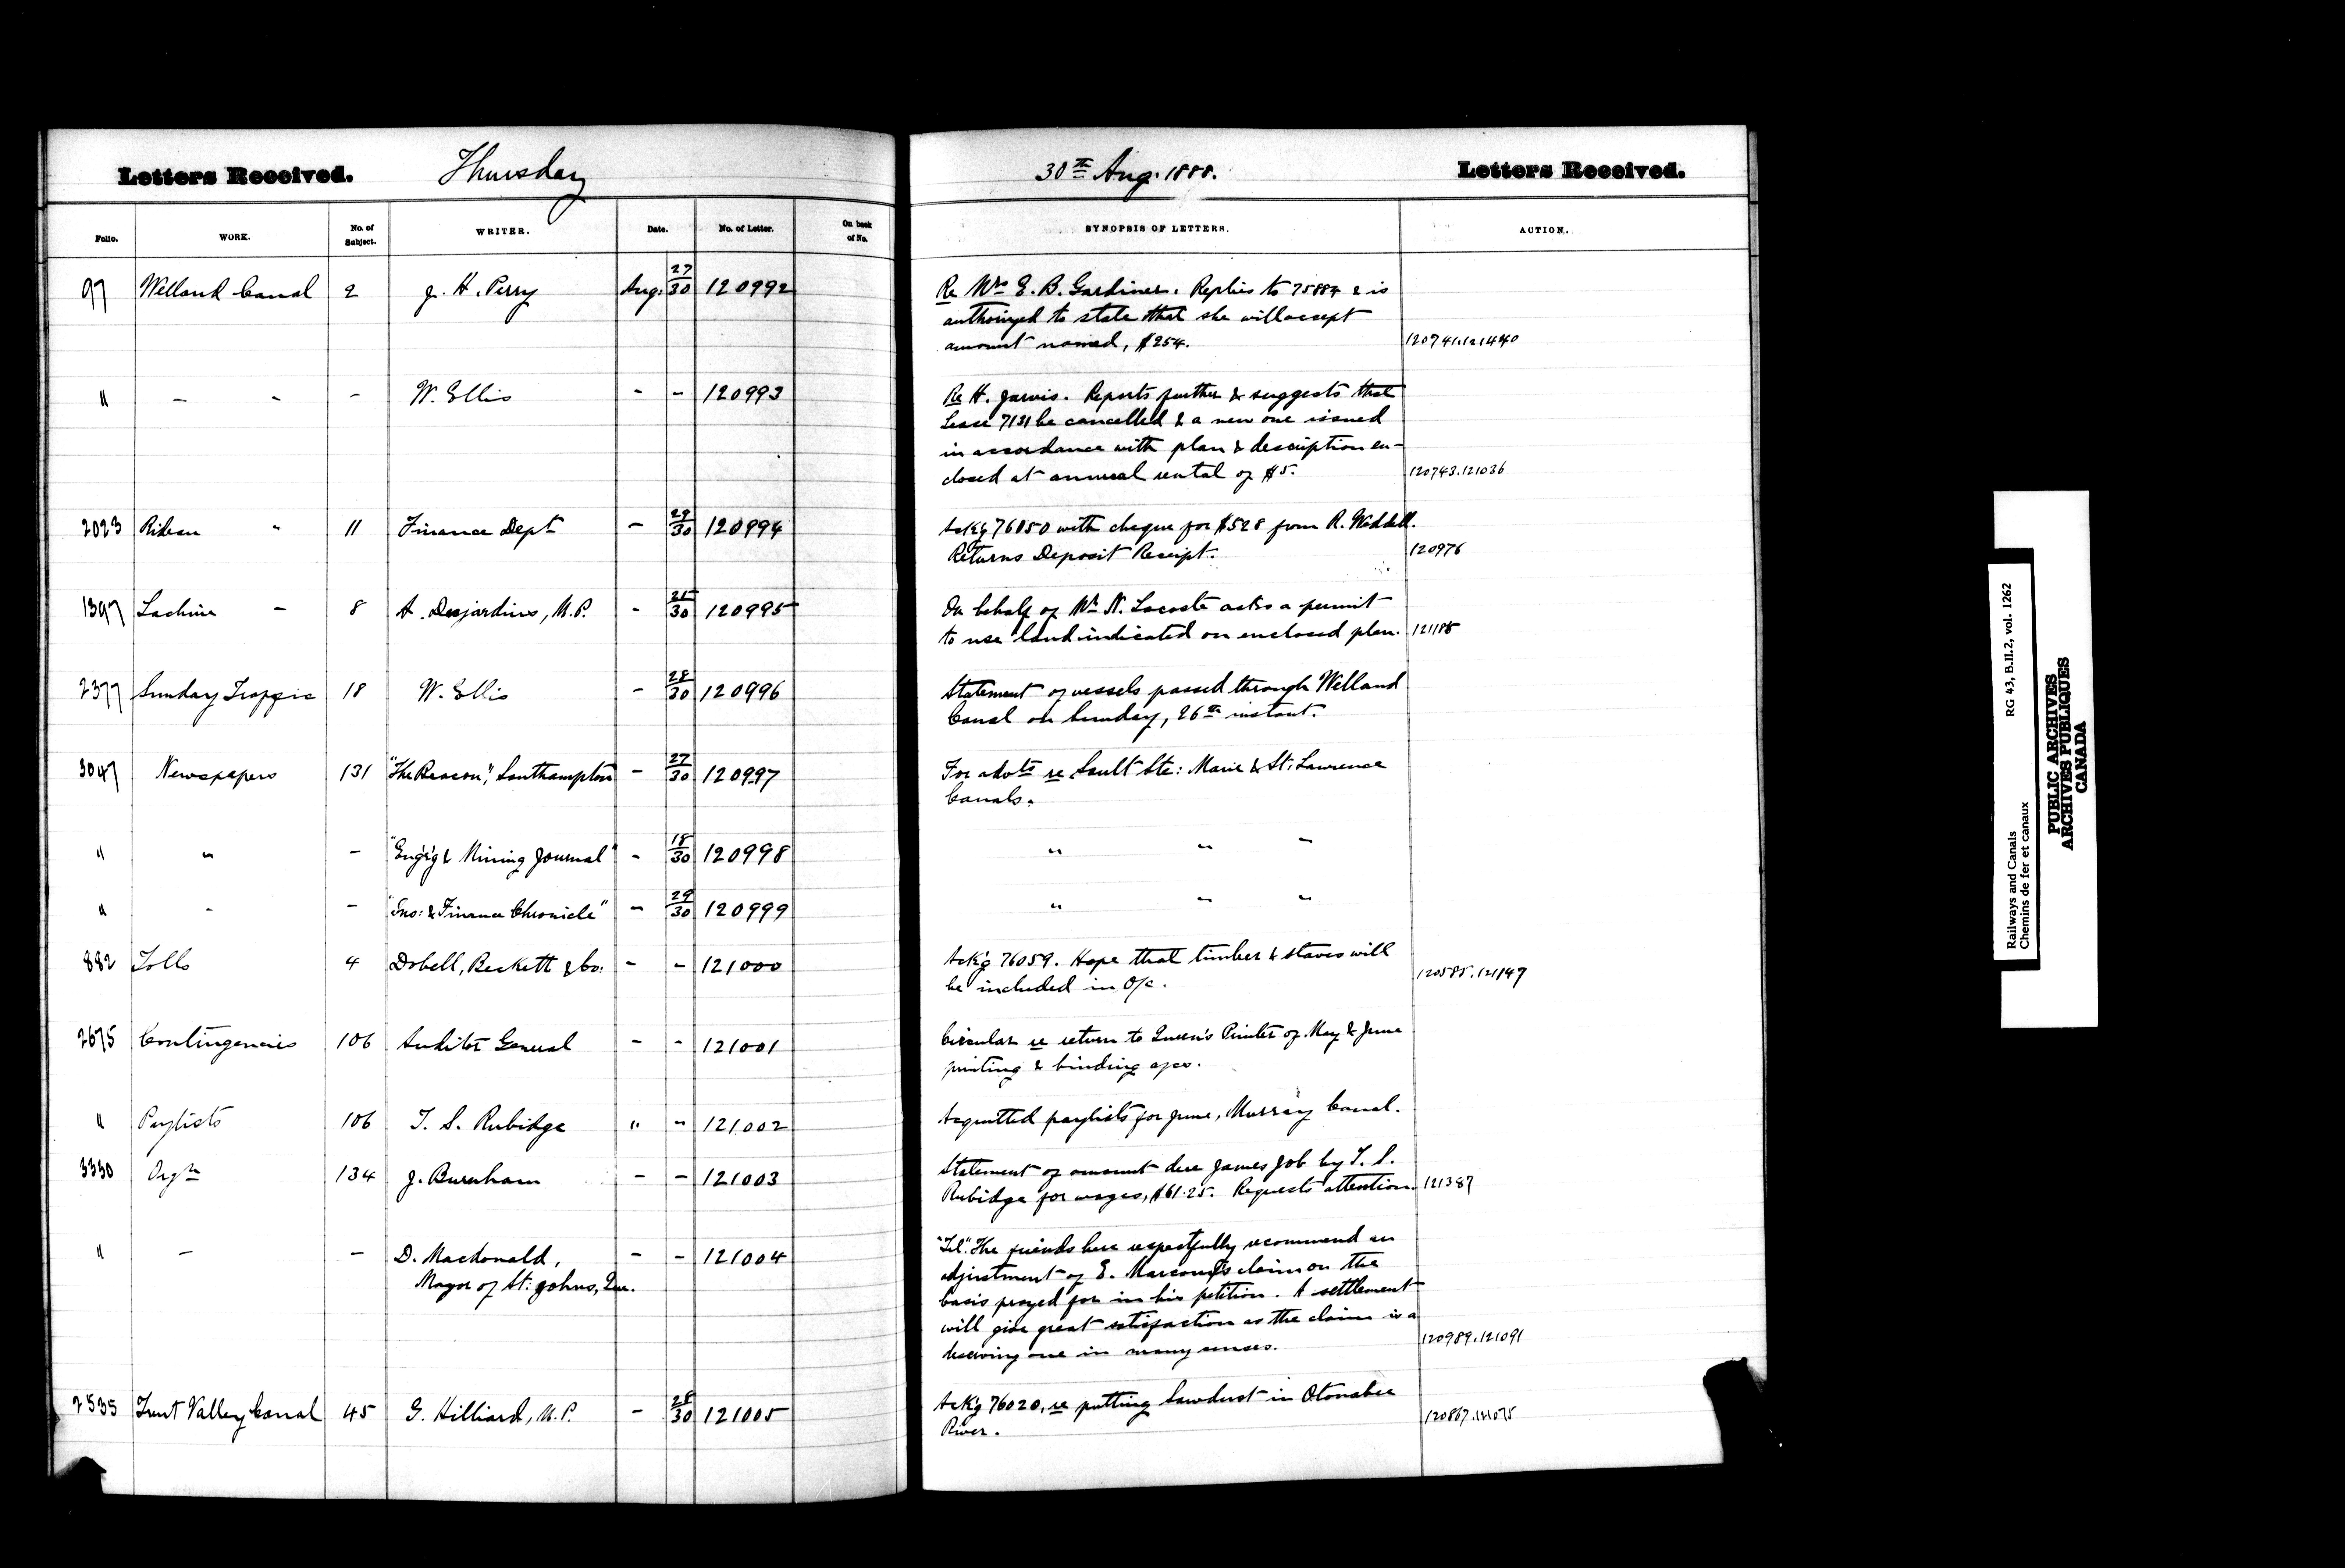 Letters Received. Thursday
Folio. WORK. No. of Subject. WRITER. Date. No. of Letter. On back of No.
97 Welland Canal 2 J. H. Perry Aug. 27/30 120992
" - - - W. Ellis - - 120993
2023 Rideau " 11 Finance Dept - 29/30 120994
1397 Lachine - 8 A. Desjardins, M.P. - 21/30 120995
2377 Sunday Traffic 18 W. Ellis - 28/30 120996
3047 Newspapers 131 "The Beacon", Southampton - 27/30 120997
" " - "Eng'g & Mining Journal" - 18/30 120998
" - - "Ins: & Finance Chronicle" - 29/30 120999
882 Tolls 4 Dobell, Beckett & Co: - - 121000
2675 Contingencies 106 Auditor General - - 121001
" Paylists 106 T. S. Rubidge " - 121002
3330 Orgn 134 J. Burnham - - 121003
" - - D. Macdonald, - - 121004
Mayor of St: Johns, Que.
2535 Trent Valley Canal 45 G. Hilliard, M.P. - 28/30 121005
30th Aug. 1888. Letters Received.
SYNOPSIS OF LETTERS. ACTION.
Re Mrs E. B. Gardiner. Replies to 75884 & is
authorized to state that she will accept
amount named, $254. 120741.121440
Re H. Jarvis. Reports further & suggests that
Lease 7131 be cancelled & a new one issued
in accordance with plan & description en-
closed at annual rental of $5. 120743.121036
Ack'g 76050 with cheque for $528 from R. Waddell.
Returns Deposit Receipt. 120976
On behalf of Mr N. Lacoste asks a permit
to use land indicated on enclosed plan. 121185
Statement of vessels passed through Welland
Canal on Sunday, 26th instant.
For advts re Sault Ste: Marie & St. Lawrence
Canals.
" " -
" - -
Ack'g 76059. Hope that timber & staves will
be included in O/c. 120585.121147
Circular re return to Queen's Printer of May & June
printing & binding a/cs.
Acquitted paylists for June, Murray Canal.
Statement of amount due James Job by T. S.
Rubidge for wages, $61.25. Requests attention. 121387
"Tel". The friends here respectfully recommend an
adjustment of E. Marcoux's claim on the
basis prayed for in his petition. A settlement
will give great satisfaction as the claim is a
deserving one in many senses. 120989.121091
Ack'g 76020, re putting Sawdust in Otonabee
River. 120867.121075
Railways and Canals RG 43, B.II.2, vol. 1262
Chemins de fer et canaux
PUBLIC ARCHIVES
ARCHIVES PUBLIQUES
CANADA